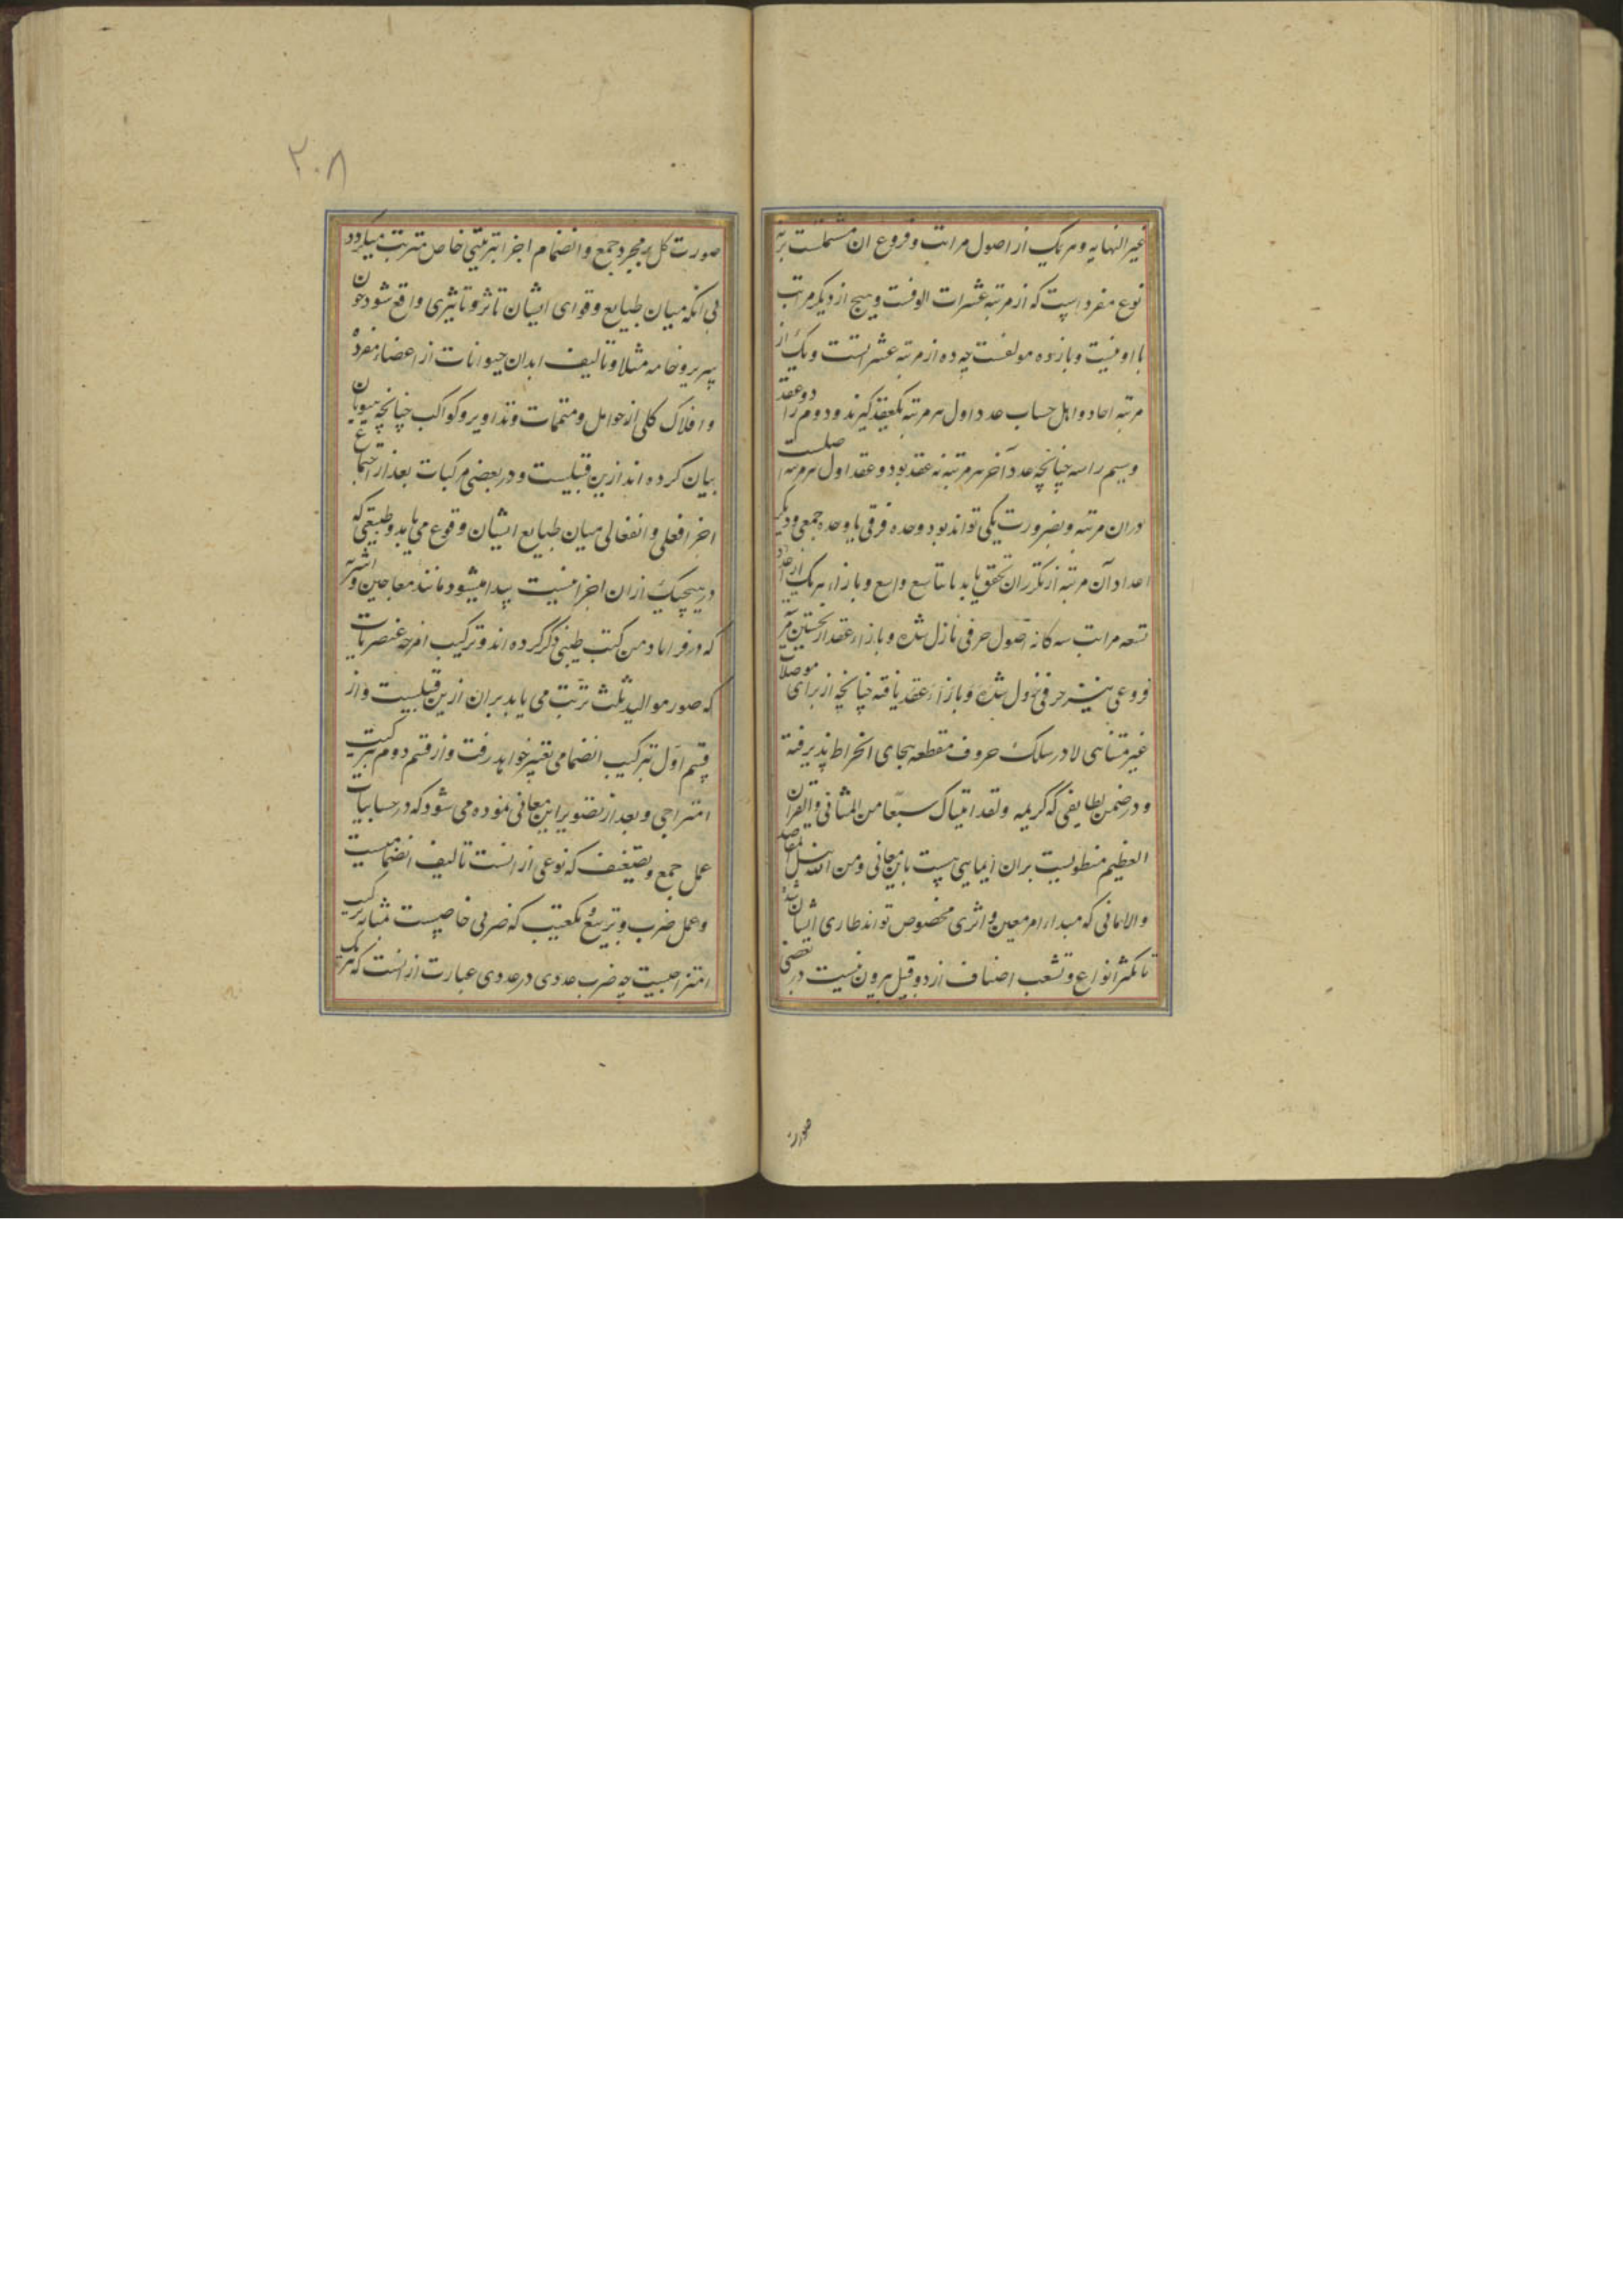 غیر النهایه و هر یک از اصول مراتب و فروع ان مشتملست بر نه
نوع مفرد است که از مرتبه عشرات الوفست و هیچ از دیگر مراتب
با او نیست و یازده مولفست چه ده از مرتبه عشر اتست و یک از
مرتبه احاد و اهل حساب عدد اول هر مرتبه یکعقد گیرند و دوم را دو عقد
و سیم را سه چنانچه عدد آخر هر مرتبه نه عقد بود و عقد اول هر مرتبه اصلست
دران مرتبه و بضرورت یکی تواند بود وحده فرقی یا وحده جمعی و دیگر
اعداد آن مرتبه از تکرر ان تحقق یابد تا تاسع و اسع و بازاء هر یک از عقد
تسعه مراتب سه کانه اصول حرفی نازل شده و بازاء عقد از نخستین مرتبه
فروعی نیز حرفی نزول شده و بازاء عقد یافته چنانچه از برای موصلات
غیر متناهی لا در سلک حروف مقطعه بجای انخراط پذیرفته
و در ضمن لطایفی که کریمه ولقد اتیناک سبعا من المثانی والقران
العظیم منطویست بران ایمایی هست باین معانی و من الله نیل المقاصد
والامانی که مبداء امر معین و اثری مخصوص تواند طاری ایشان شد
با تکثر انواع و تشعب اصناف از دو قبیل بیرون نیست در بعضی
صورت
۲۰۸
صورت کل بر مجرد جمع و انضمام اجزا بترتیبی خاص مترتب میگردد
بی انکه میان طبایع و قوای ایشان تاثر و تاثیری واقع شود چون
سریر و خامه مثلا و تالیف ابدان حیوانات از اعضاء مفرده
و افلاک کلی از حوامل و متممات و تداویر و کواکب چنانچه هیویان
بیان کرده اند ازین قبیلست و در بعضی مرکبات بعد از اجتماع
اجزا فعلی و انفعالی میان طبایع ایشان وقوع می یابد و طبیعتی که
در هیچیک ازان اجزا نیست پیدا میشود مانند معاجین و اشربه
که در قرابادین کتب طبی ذکر کرده اند و ترکیب امزجه عنصریات
که صور موالید ثلث ترتب می یابد بران ازین قبیلست و از
قسم اول بترکیب انضمامی تعبیر خواهد رفت و از قسم دوم بترکیب
امتزاجی و بعد از تصویر این معانی نموده می شود که در حسابیات
عمل جمع و تضعیف که نوعی از انست تالیف انضمامیست
و عمل ضرب و تربیع و تکعیب که ضربی خاصیست مثابه ترکیب
امتزاجیست چه ضرب عددی در عددی عبارت از انست که هر یک